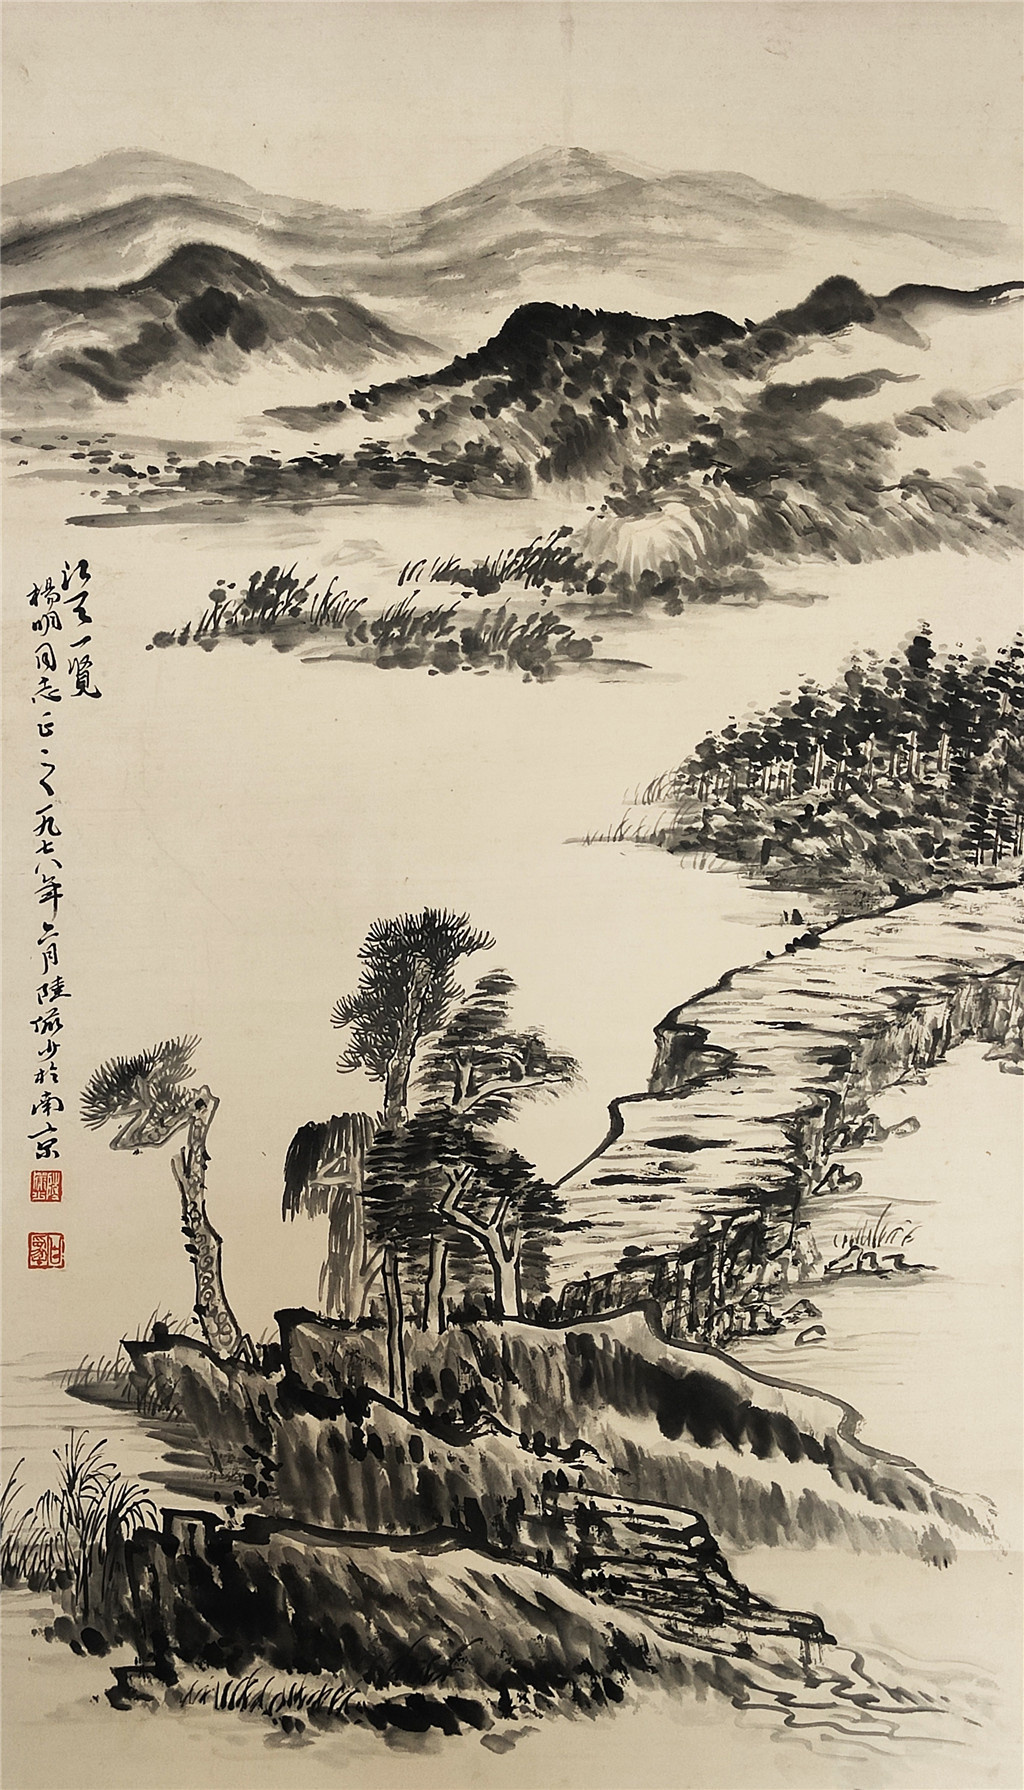 江天一覽
楊明同志正之一九七八年六月陸儼少於南京